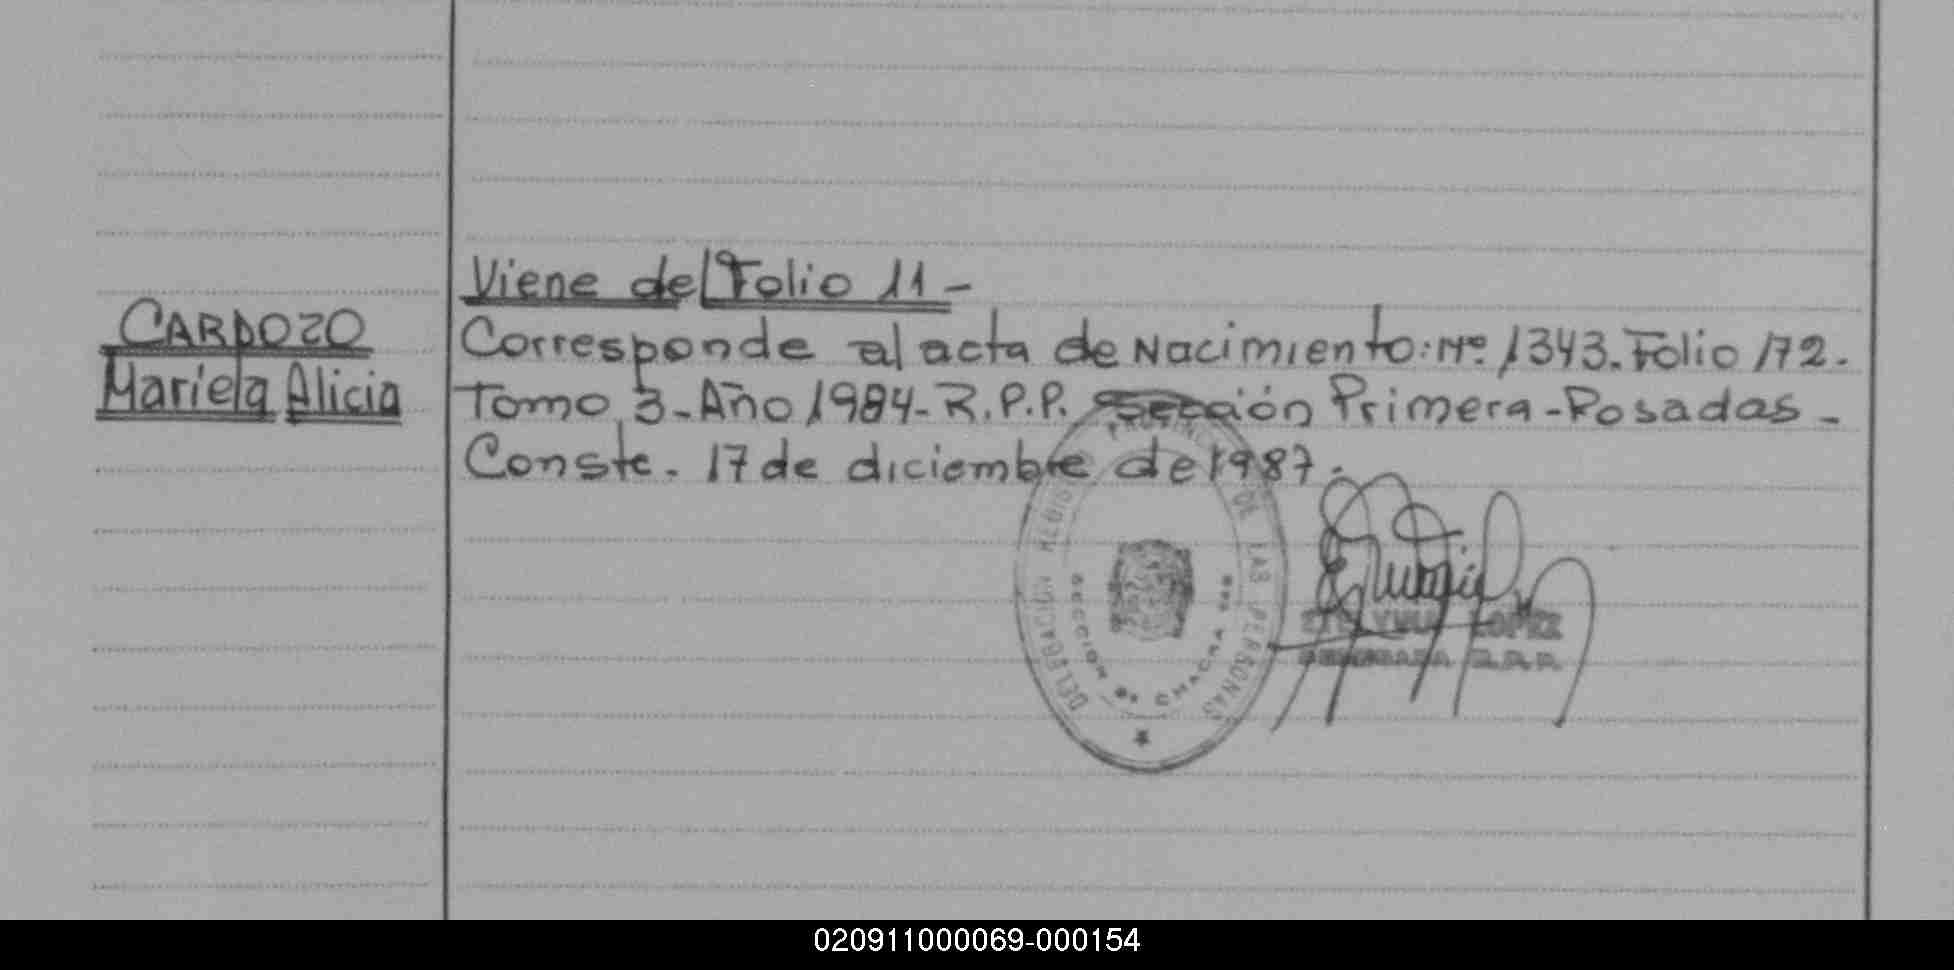 Viene del Folio 11-
CARDOZO
Mariela Alicia
Corresponde al acta de Nacimiento: Nº 1343. Folio 172.
Tomo 3-Año 1984-R.P.P. Sección Primera-Posadas-
Conste. 17 de diciembre de 1987.
DELEGACION REGIS PROVINC DE LAS PERSONAS
SECCION CHACRA
LOPEZ
020911000069-000154